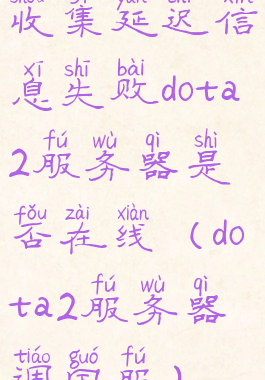 shōu jí yán chí xìn
收集延迟信
xī shī bài
息失败dota
fú wù qì shì
2服务器是
fǒu zài xiàn
否在线（do
fú wù qì
ta2服务器
tiáo guó fú
调国服）